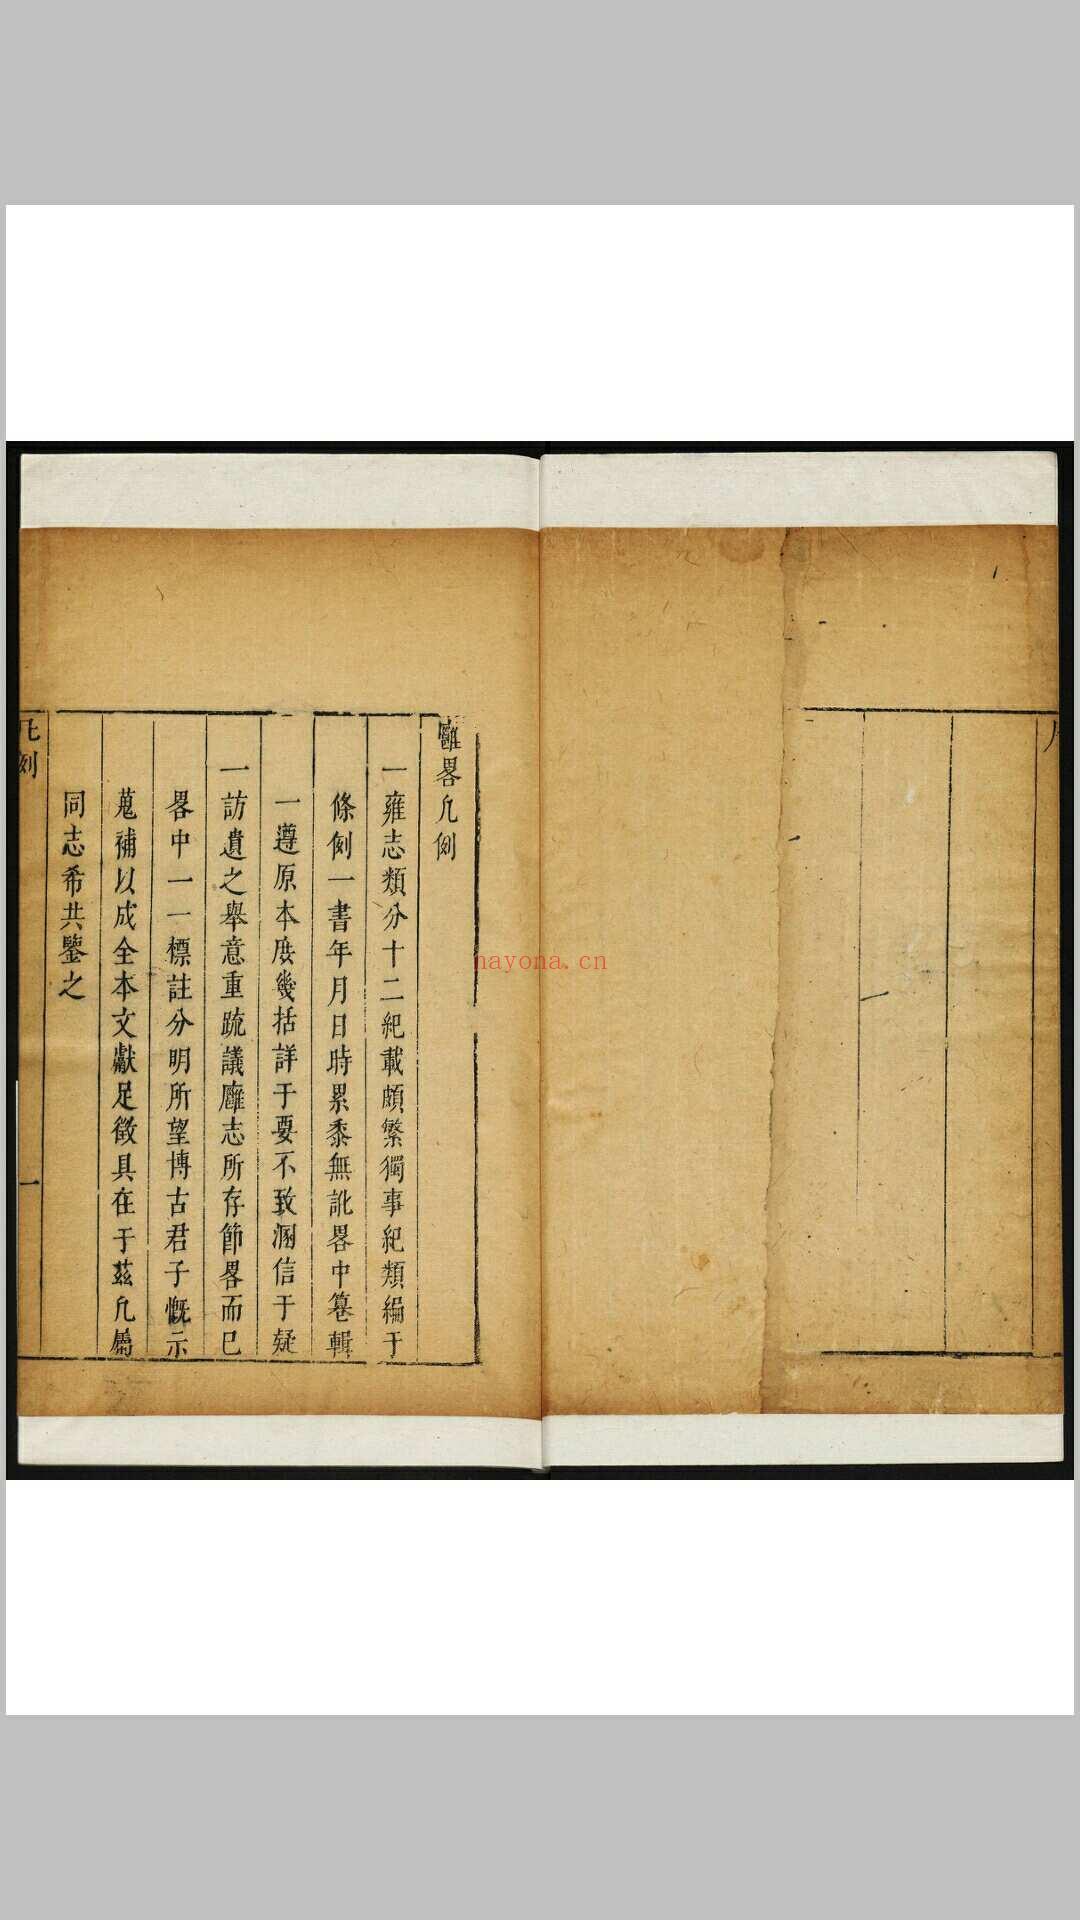 雝畧凡例
一雍志類分十二紀載頗繁獨事紀類編于
條例一書年月日時累黍無訛畧中篹輯
一遵原本庻幾括詳于要不致溷信于疑
一訪遺之舉意重䟽議廱志所存節畧而已
畧中一一標註分明所望博古君子慨示
蒐補以成全本文獻足徵具在于茲凡屬
同志希共鑒之
凡例
一
hayona.cn